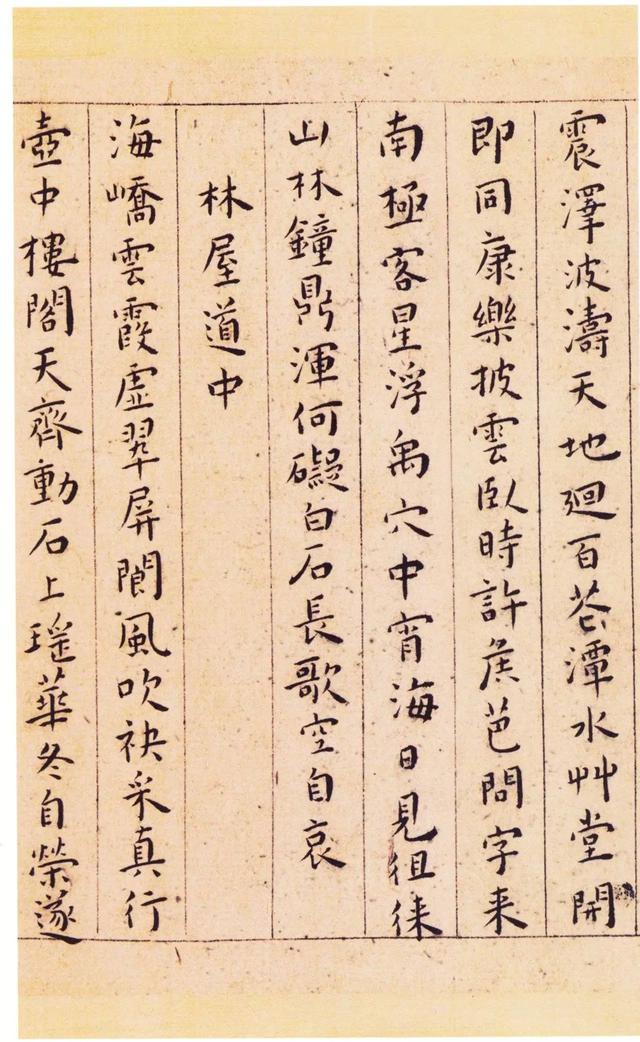 震澤波濤天地廻百花潭水艸堂開
即同康樂披雲臥時許侯芭問字来
南極客星浮禹穴中宵海日見徂徠
山林鐘鼎渾何礙白石長歌空自哀
林屋道中
海嶠雲霞虛翠屏閬風吹袂采真行
壺中樓閣天齊動石上瑤華冬自榮遂